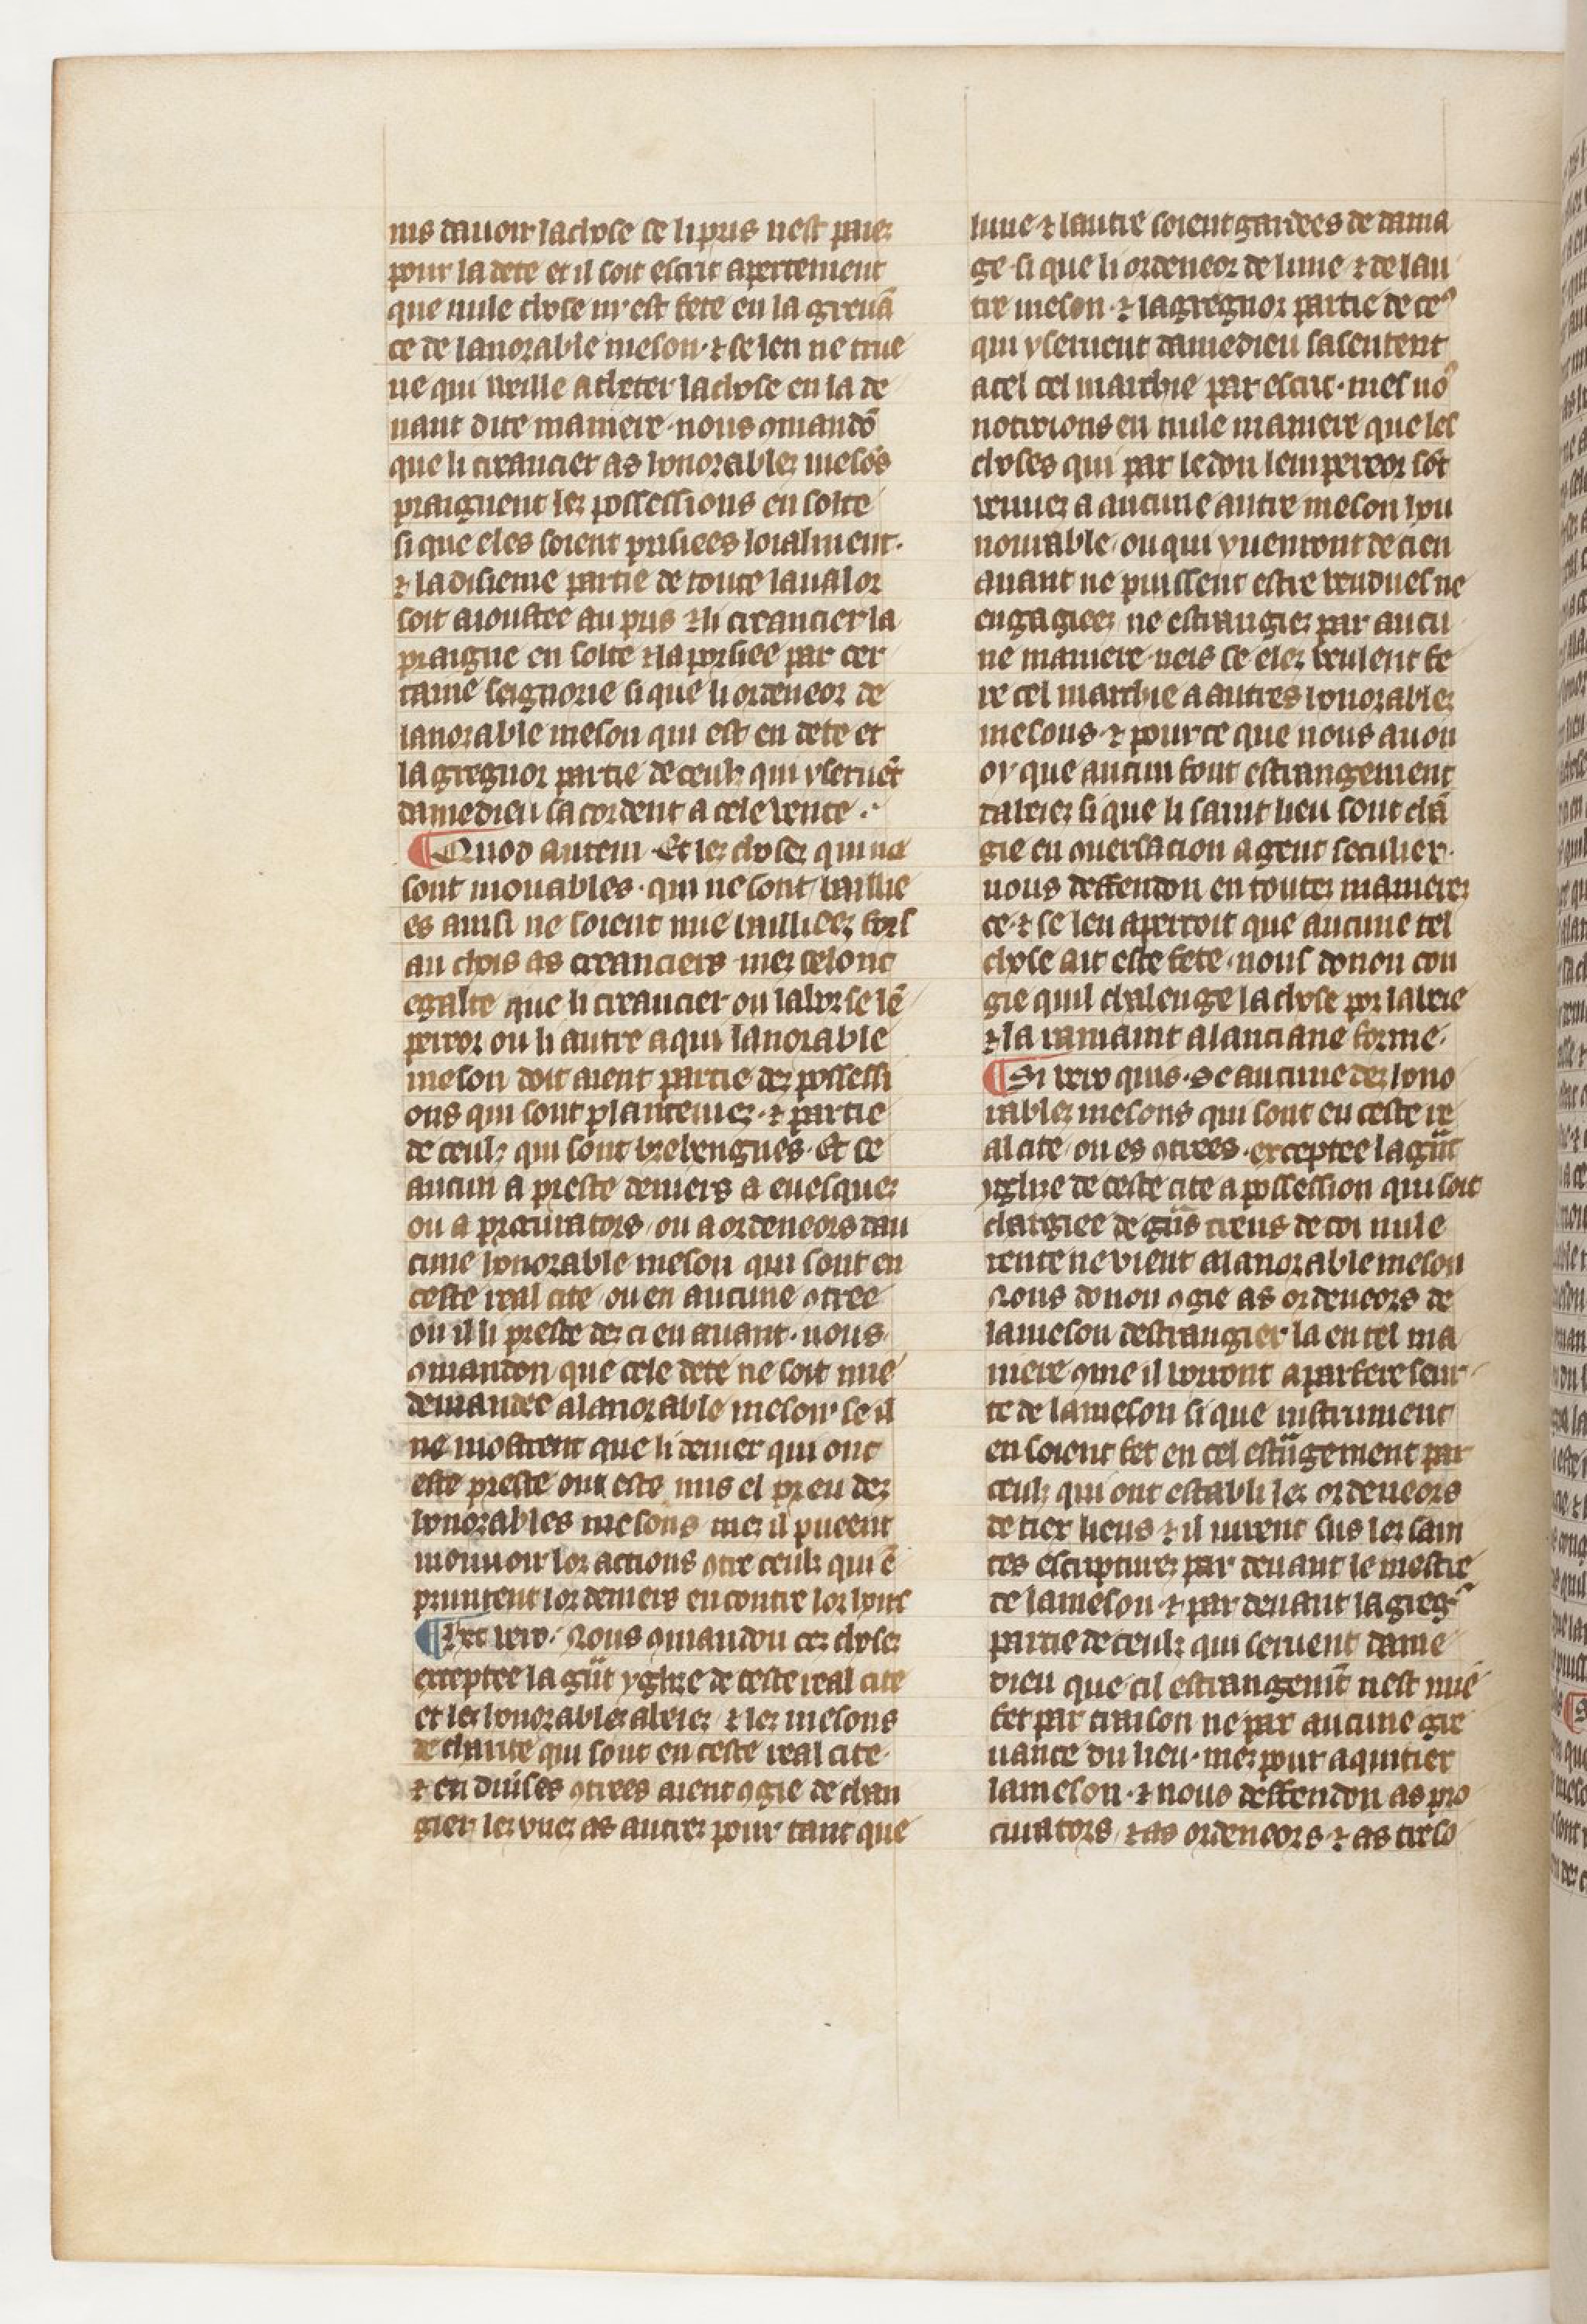 nis dauoir la chose se li pris nest paiez
pour la dete et il soit escrit apertement
que nule chose ni est fete en la greuā
ce de lanorable meson · ⁊ se len ne true
ue qui ueille acheter la chose en la de
uant dite maniere · nous ꝯmandō
que li creancier as honorablez mesōs
praignent lez possessions en solte
si que eles soient prisiees loialment ·
⁊ la disieme partie de toute la ualor
soit aioustee au pris ⁊ li creancier la
praigne en solte ⁊ la porsiee par cer
taine seignorie si que li ordeneor de
lanorable meson qui est en dete et
la gregnor partie de ceulz qui y seruēt
damedieu sacordent a cele uente ·
¶ Quod autem · Et lez chosez qui ne
sont mouables · qui ne sont baillie
es ainsi ne soient mie bailliees fors
au chois as creanciers mez selonc
egalte que li creancier ou la borse lē
peror ou li autre a qui lanorable
meson doit aient partie dez possessi
ons qui sont planteiuez · ⁊ partie
de ceulz qui sont brehengnes · Et se
aucun a preste deniers a euesquez
ou a procurators / ou a ordeneors dau
cune honorable meson qui sont en
ceste real cite / ou en aucune ꝯtree
ou il li preste dez ci en auant · nous
ꝯmandon que cele dete ne soit mie
demandee a lanorable meson se il
ne mostrent que li denier qui ont
este preste ont este mis el preu dez
honorables mesons mez il pueent
mouuoir lor actions ꝯtre ceulz qui ē
pruntent lor deniers encontre lor hoirs
¶ Hec uero · Nous ꝯmandon cez chosez
exceptee la gͣnt yglise de ceste real cite
et lez honorablez abeiez ⁊ lez mesons
de charite qui sont en ceste real cite ·
⁊ en diuͥses ꝯtrees aient ꝯgie de chan
gier lez unez as autrez pour tant que
lune ⁊ lautre soient gardees de dama
ge · si que li ordeneor de lune ⁊ de lau
tre meson · ⁊ la gregnor partie de ceꝰ
qui y seruent damedieu sasentent
a cel cel marchie par escrit · mes noꝰ
notroions en nule maniere que les
choses qui par le don lempereor sōt
uenuez a aucune autre meson hon
nourable / ou qui y uenront de ci en
auant ne puissent estre uendues ne
engagiees ne estrangiez par aucu
ne maniere neis se elez ueulent fe
re cel marchie a autres honorablez
mesons · ⁊ pour ce que nous auon
oy que aucun font estrangement
dabeiez si que li saint lieu sont chā
gie en ꝯuersacion a gent seculier ·
nous deffendon en toutez manierez
ce · ⁊ se len apercoit que aucune tel
chose ait este fete · nous donon con
gie quil chalenge la chose por labeie
⁊ la ramaint a lanciane forme ·
¶ Si uero quis · Se aucune dez hono
rablez mesons qui sont en ceste re
al cite / ou es ꝯtrees · exceptee la gͣnt
yglise de ceste cite a possession qui soit
chargiee de gͣns treus de coi nule
rente ne vient a lanorable meson
Nous donon ꝯgie as ordeneors de
la meson destrangier la en tel ma
niere ꝯme il uorront a parfere seur
te de la meson si que instrument
en soient fet en cel estͣngement par
ceulz qui ont establi lez ordeneors
de tiex lieus ⁊ il iurent sus lez sain
tes escripturez par deuant le mestre
de la meson ⁊ par deuant la gregͬ
partie de ceulz qui seruent dame
dieu que cil estrangemēt nest mie
fet par traison ne par aucune gre
uance du lieu · mez pour aquitier
la meson · ⁊ nous deffendon as pro
curators / ⁊ as ordeneors ⁊ as treso